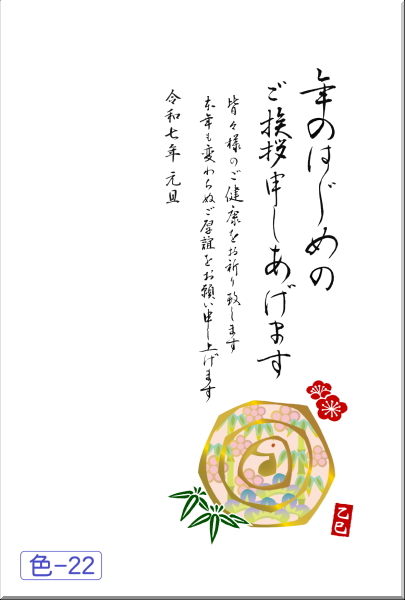 年のはじめの
ご挨拶申しあげます
皆々様のご健康をお祈り致します
本年も変わらぬご厚誼をお願い申し上げます
令和七年 元旦
乙巳
色-22